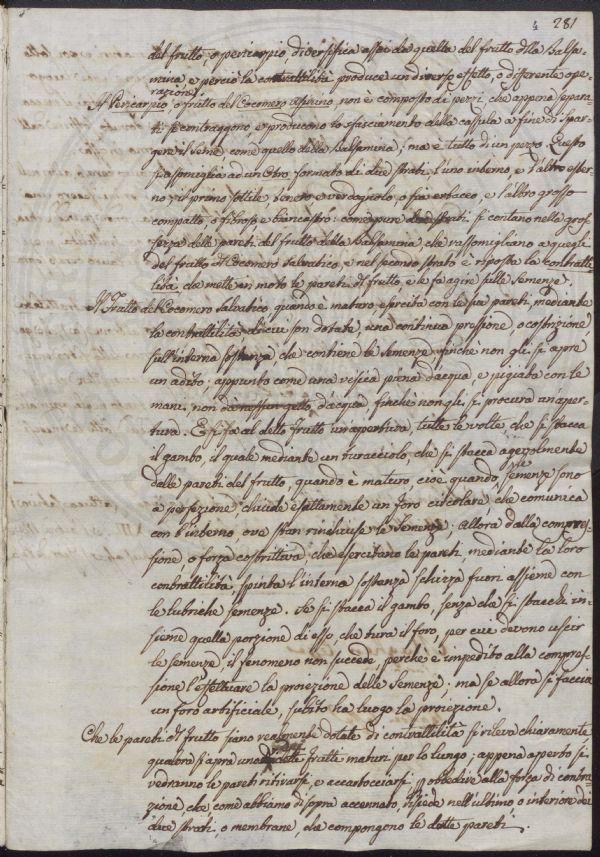 281
del frutto, o pericarpio, diversifica assai da quella del frutto della Balsa-
mina e perciò la contrattilità produce un diverso effetto, o differente ope-
razione.
Il Pericarpio, o frutto del Cocomero asinino, non è composto di pezzi, che appena separa-
ti si contraggono e producono lo sfasciamento della cassula a fine di spar-
gere il seme come quello della Balsamina; ma è tutto di un pezzo. Questo
rassomiglia ad un otro formato di due strati, l'uno interno, e l'altro ester-
no; il primo sottile tenero e verdognolo, o sia erbaceo, e l'altro grosso
compatto, o fibroso e biancastro: come pure due strati si contano nella gros-
sezza delle pareti del frutto della Balsamina, che rassomigliano a quegli
del frutto di Cocomero salvatico, e nel secondo strato è riposta la contratti-
lità, che mette in moto le pareti di frutto, e le fa agire sulle semenze.
Il Frutto del Cocomero salvatico quando è maturo, esercita con le sue pareti, mediante
la contrattilità di cui son dotate, una continua pressione, o costrizione
sull'interna sostanza che contiene le semenze finchè non gli si apre
un adito; appunto come una vesica piena d'acqua, e pigiata con le
mani, non dà nessun getto d'acqua finchè non gli si procura un'aper-
tura. E si fa al detto frutto un'apertura, tutte le volte, che si stacca
il gambo, il quale mediante un turacciolo, che si stacca agevolmente
dalle pareti del frutto, quando è maturo, cioè quando le semenze sono
a perfezione chiude esattamente un foro circolare che comunica
con l'interno ove stan rinchiuse le semenze. Allora dalla compres-
sione o forza costrittiva, che esercitano le pareti, mediante la loro
contrattilità, spinta l'interna sostanza schizza fuori assieme con
le lubriche semenze. Se si stacca il gambo, senza che si stacchi in-
sieme quella porzione di esso, che tura il foro, per cui devono uscir
le semenze, il fenomeno non succede, perchè è impedito alla compres-
sione l'effettuare la proiezione delle semenze; ma se allora si faccia
un foro artificiale, subito ha luogo la proiezione.
Che le pareti di frutto siano realmente dotate di contrattilità si rileva chiaramente
qualora si apra uno dei detti frutti maturi per lo lungo; appena aperto si
vedranno le pareti ritirarsi, e accartocciarsi p obedire alla forza di contra-
zione che come abbiamo di sopra accennato, risiede nell'ultimo o interiore dei
due strati, o membrane, che compongono le dette pareti.